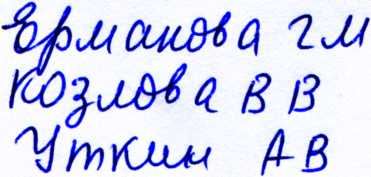 Ермакова гм
Козлова В В
Уткин А В